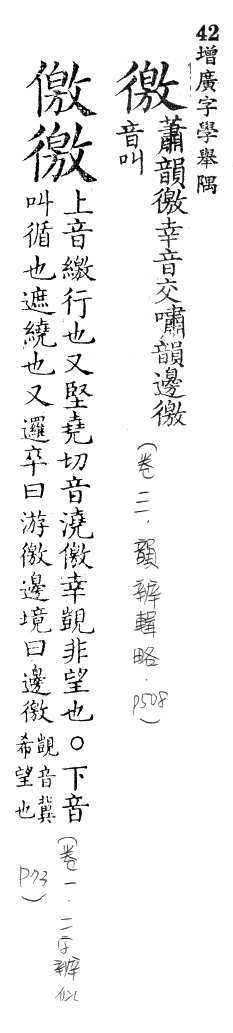 42增廣字學舉隅
徼 蕭韻徼幸音交嘯韻邊徼
音叫
(卷二.韻辨輯略.p508)
儌徼 上音繳行也又堅堯切音澆儌幸覬非望也○下音
叫循也遮繞也又邏卒曰游徼邊境曰邊徼 覬音冀
希望也
(卷一.二字辨似
p73)